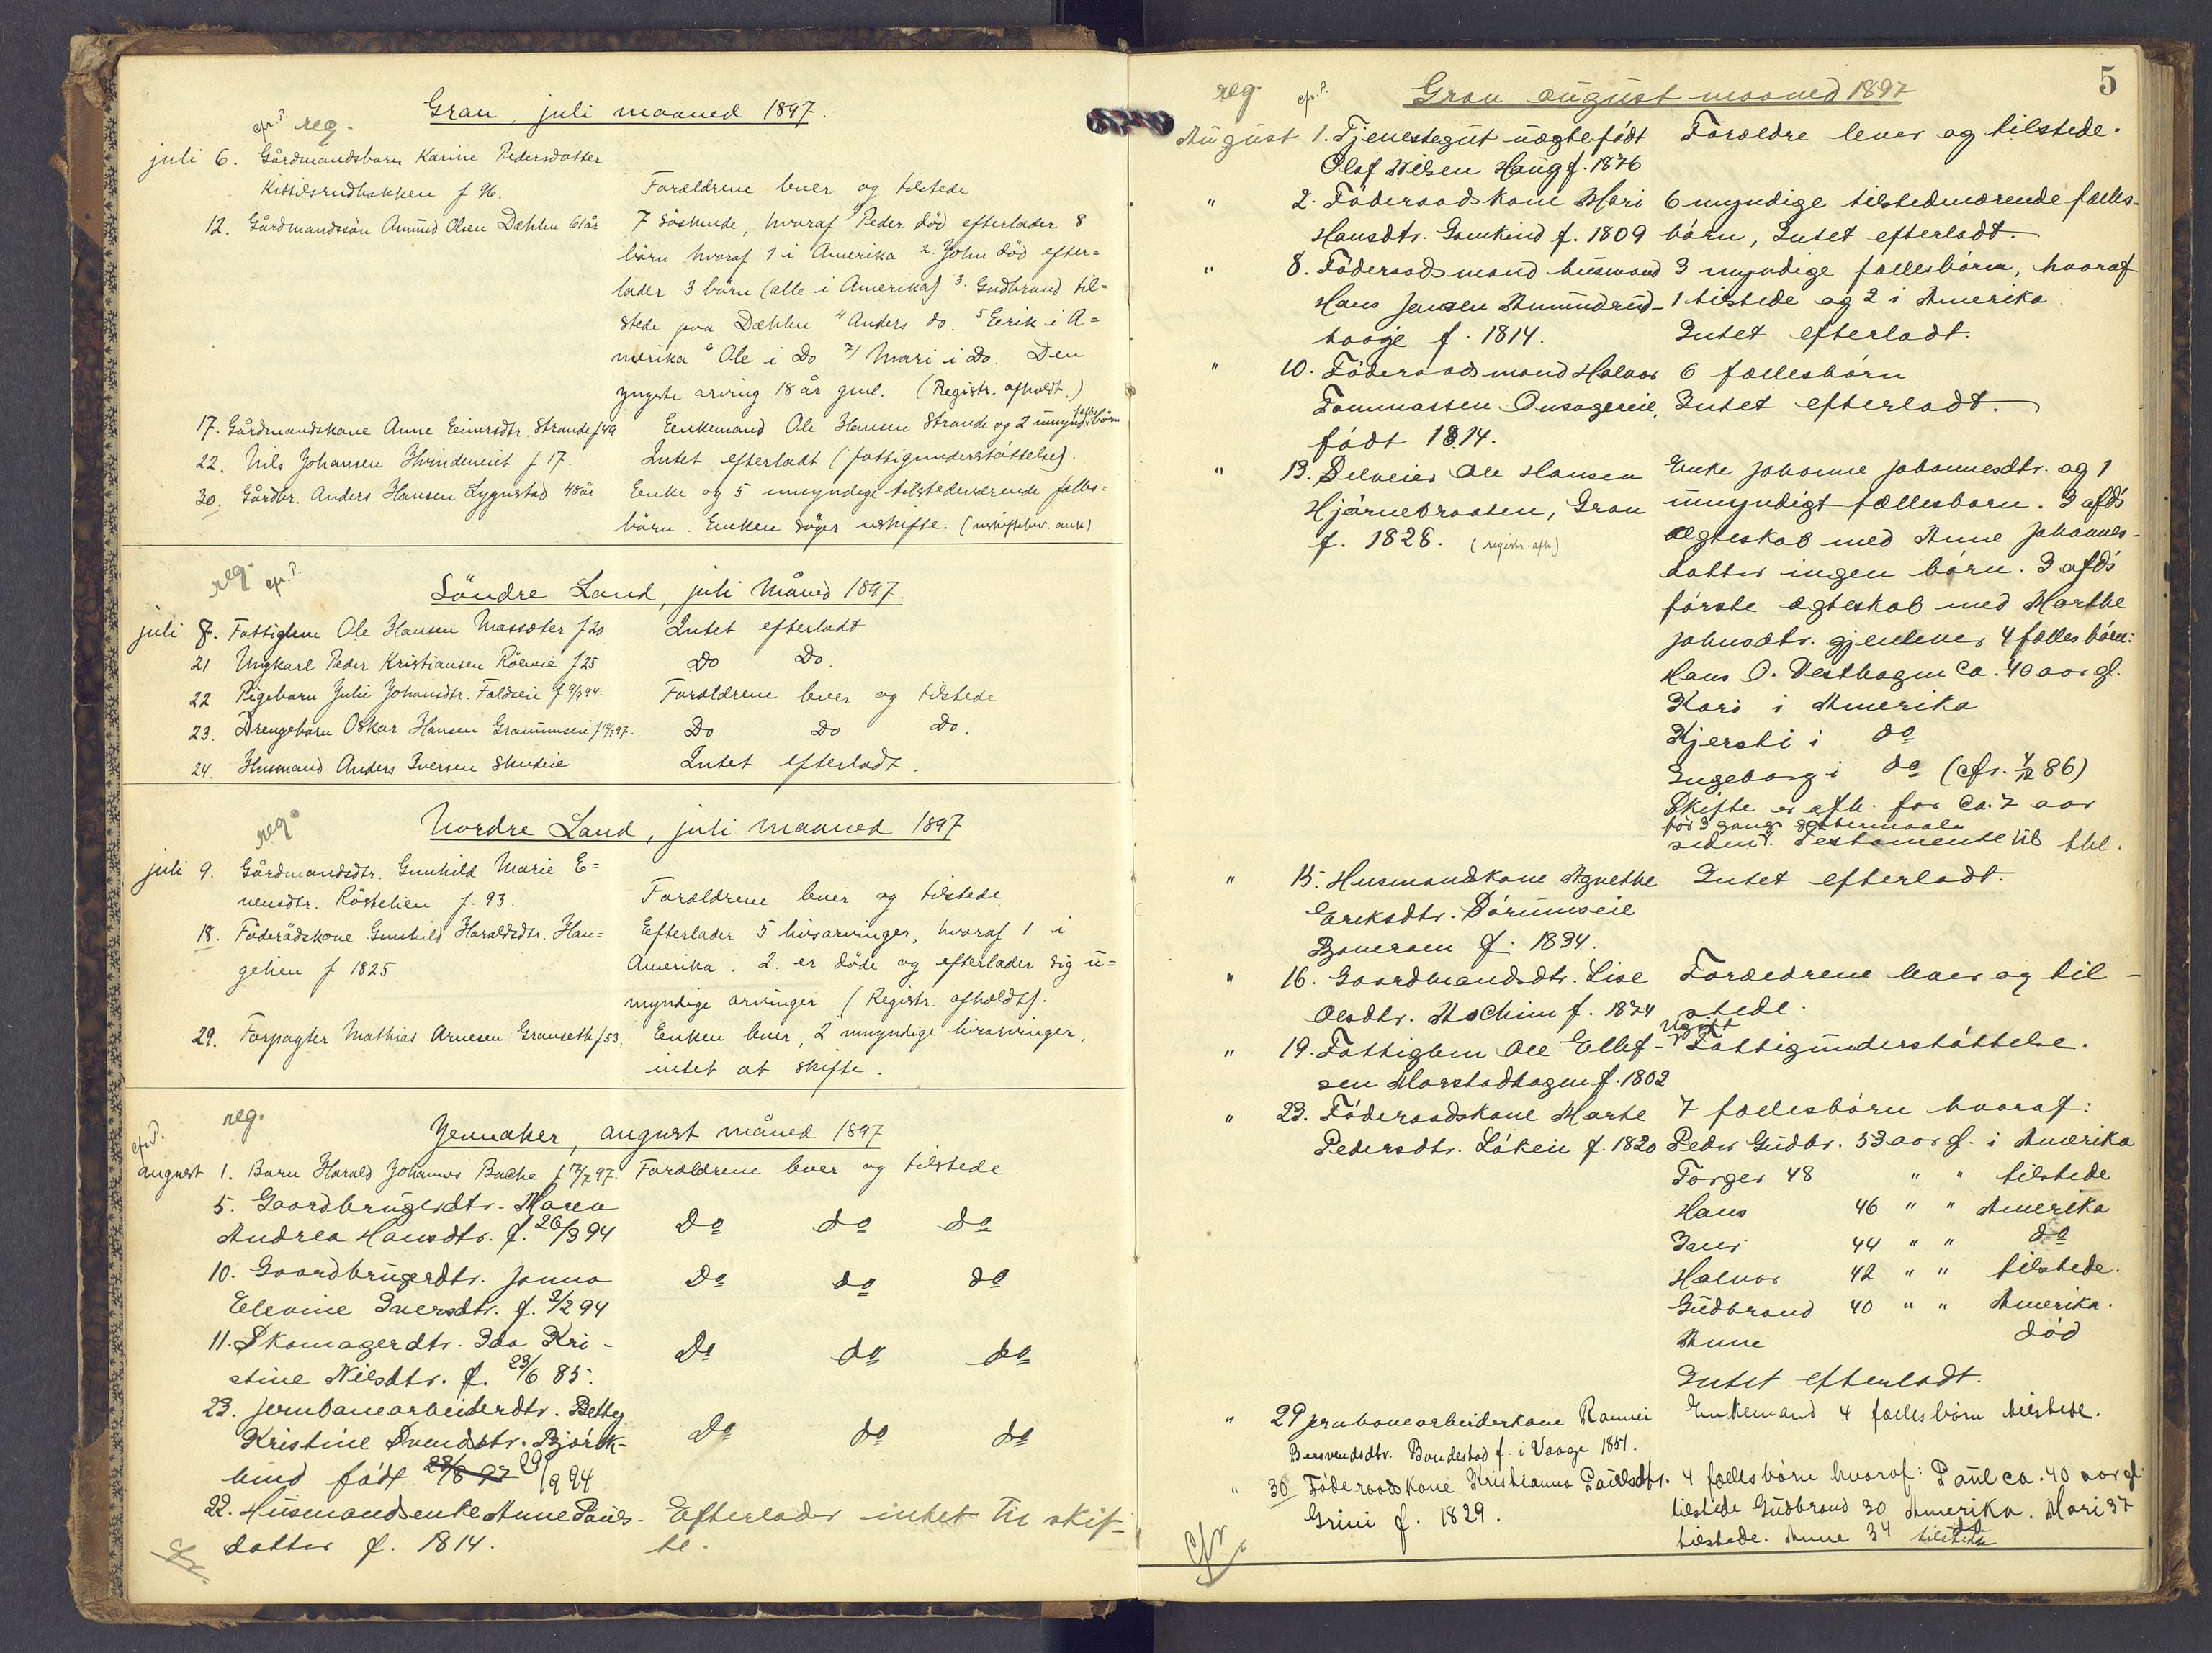 Gran, juli maaned 1897.
cfr. P. reg.
juli 6. Gårdmandsbarn Karine Pedersdatter
Kittilsrudbakken f 96. Forældrene lever og tilstede
12. Gårdmandssön Amund Olsen Dæhlen 61 år 7 söskende, hvoraf 1) Peder död efterlader 8
börn hvoraf 1 i Amerika 2. John död efter=
lader 3 börn (alle i Amerika) 3. Gudbrand til=
stede paa Dæhlen 4 Anders do. 5 Eerik i A=
merika 6 Ole i Do 7/ Mari i Do. Den
yngste arving 18 år gml. (Registr. afholdt.)
17. Gårdmandskone Anne Einersdtr. Strande f 49 Eenkemand Ole Hansen Strande og 2 umynd. fælles börn
22. Nils Johansen Hvindeneiet f 17. Intet efterladt (fattigunderstöttelse).
30. Gårdbr. Anders Hansen Lygnstad 48 år Eenke og 5 umyndige tilstedeværende fælles=
börn. Enken söger uskifte. (uskiftebev. ank)
reg. cfr. P.
Söndre Land, juli Måned 1897.
juli 7. Fattiglem Ole Hansen Massæter f 20 Intet efterladt
21 Ungkarl Peder Kristiansen Röeneie f 25 Do Do.
22 Pigebarn Julie Johansdtr. Faldseie f 9/9 94. Forældrene lever og tilstede
23. Drengebarn Oskar Hansen 97. Do Do Do.
24. Husmand Anders Iversen Skuteie Intet efterladt.
reg.
Nordre Land, juli maaned 1897
juli 9. Gårdmandsdtr. Gunhild Marie E=
vensdtr. Röstelien f. 93. Forældrene lever og tilstede
18. Föderådskone Gunhild Haraldsdtr. Hau= Efterlader 5 livsarvinger, hvoraf 1 i
gelien f 1825 Amerika. 2. er döde og efterlader sig u=
myndige arvinger (Registr. afholdt).
29. Forpagter Mathias Arnesen Granseth f 53. Enken lever, 2 umyndige livsarvinger,
intet at skifte.
cfr. P. reg.
Jevnaker, august måned 1897
august 1. Barn Harald Johannes Bache f 17/7 97. Forældrene lever og tilstede
5. Gaardbrugerdtr. Maren
Andrea Hansdtr. f. 26/3 94 Do do do
10. Gaardbrugerdtr. Janna
Elevine Iversdtr. f. 2/2 94 Do do do
11. Skomagerdtr. Ida Kri-
stine Nilsdtr. f. 23/6 85. Do do do
23. Jernbanearbeiderdtr. Betty
Kristine Svendsdtr. Björk- Do do do
lund född 28/8 97 29/9 94
22. Husmandsenke Anne Pauls- Efterlader intet til skif-
datter f. 1814. te.
cfr.
5
reg. cfr. P. Gran august maaned 1897
August 1. Tjenestegut uægtefödt Forældre lever og tilstede.
Olaf Nilsen Haug f. 1876
" 2. Föderaadskone Mari 6 myndige tilstedeværende fælles-
Hansdtr. Gamkind f. 1809 börn, Intet efterladt.
" 8. Föderaadsmand husmand 3 myndige fællesbörn, hvoraf
Hans Jansen Amundrud- 1 tilstede og 2 i Amerika
haage f. 1814. Intet efterladt.
" 10. Föderaadsmand Halvor 6 fællesbörn
Tommassen Onsagereie, Intet efterladt.
födt 1814.
" 13. Selveier Ole Hansen Enke Johanne Johannesdtr. og 1
Hjärnebraaten, Gran umyndigt fællesbarn. I afd's
f. 1828. (registr. afh.) ægteskab med Anne Johannes-
datter ingen börn. I afd's
förste ægteskab med Marthe
Johnsdtr. gjenlever 4 fælles börn:
Hans O. Vesthagen ca. 40 aar gl.
Kari i Amerika
Kjersti i do
Ingeborg i do (cfr. 4/12 86)
Skifte er afh. for ca. 7 aar
för 3 gangs ægtemaale
siden. Testamente til thl.
" 15. Husmandskone Agnethe Intet efterladt.
Eriksdtr. Sörumseie
f. 1834.
" 16. Gaardmandsdtr. Lise Forældrene lever og til-
Olsdtr. Aschim f. 1874 stede.
" 19. Fattiglem Ole Ellef- Ugift Fattigunderstöttelse.
sen Morstadhagen f. 1802
" 23. Föderaadskone Marte 7 fællesbörn hvoraf:
Pedersdtr. Lökeii f. 1820 Peder Gudbr. 53 aar gl. i Amerika
Torger 48 " " tilstede
Hans 46 " " Amerika
Iver 44 " " do
Halvor 42 " " tilstede.
Gudbrand 40 " " Amerika.
Anne död
Intet efterladt.
" 29 Jernbanearbeiderkone Ramei Enkemand 4 fælles börn tilstede.
Bersvendsdtr. Bondestad f. i Vaage 1851.
" 30 Föderaadskone Kristianna Paulsdtr. 4 fælles börn hvoraf: Paul ca. 40 aar gl
Grini f. 1829. tilstede Gudbrand 30 Amerika. Mari 37
tilstede. Anne 34 tilstede
cfr.